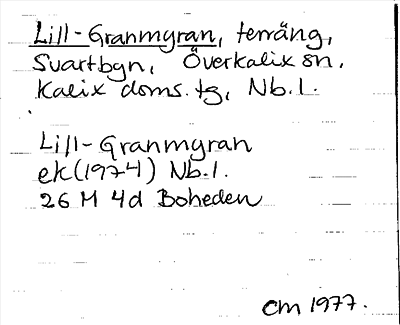 Lill-Granmyran, terräng,
Svartbyn, Överkalix sn,
Kalix doms. tg, Nb. l.
Lill-Granmyran
ek (1974) Nb. l.
26 M 4d Boheden
CM 1977.